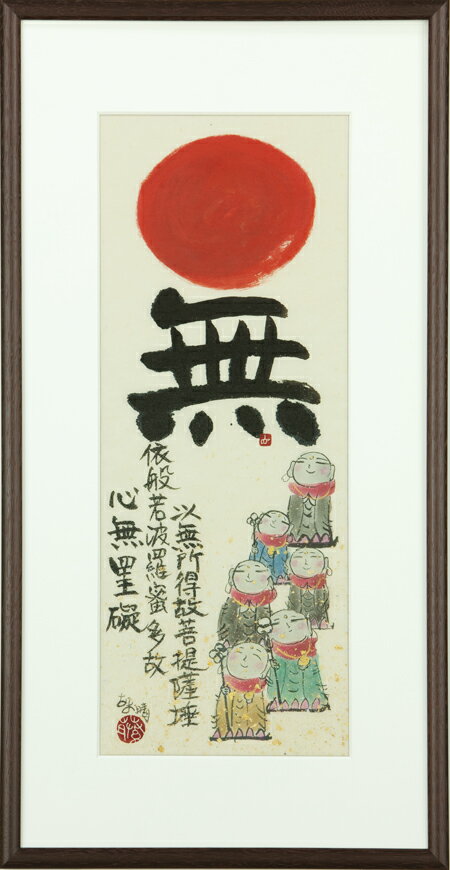 無
以無所得故菩提薩埵
依般若波羅蜜多故
心無罣礙